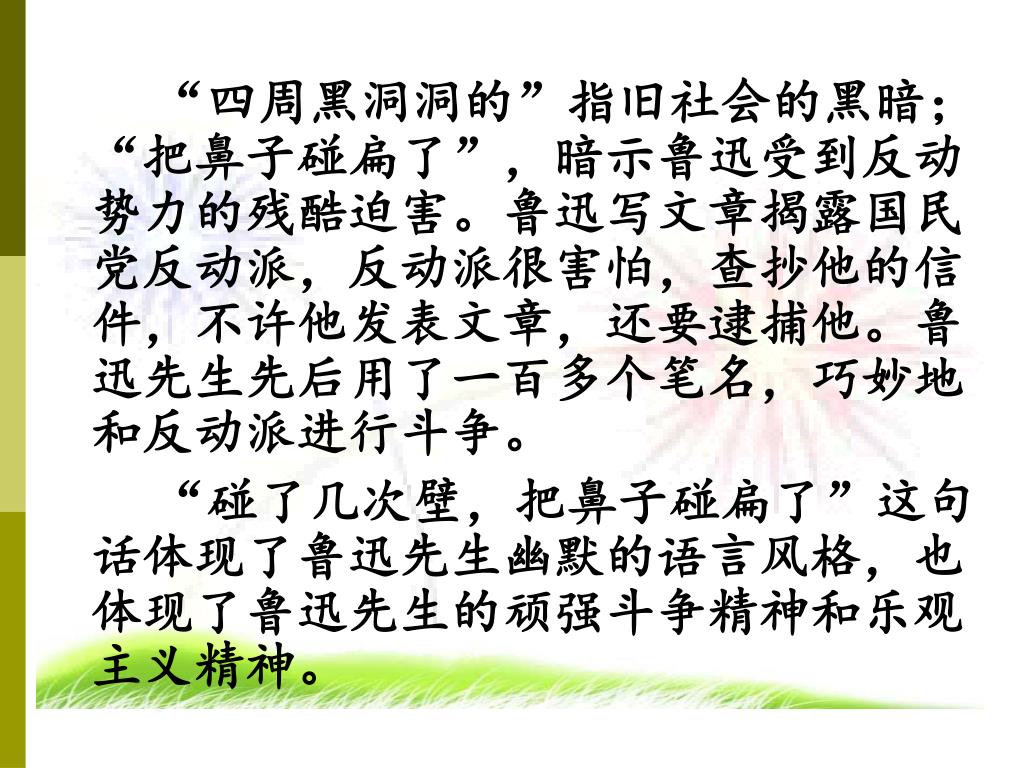 “四周黑洞洞的”指旧社会的黑暗；
“把鼻子碰扁了”，暗示鲁迅受到反动
势力的残酷迫害。鲁迅写文章揭露国民
党反动派，反动派很害怕，查抄他的信
件，不许他发表文章，还要逮捕他。鲁
迅先生先后用了一百多个笔名，巧妙地
和反动派进行斗争。
“碰了几次壁，把鼻子碰扁了”这句
话体现了鲁迅先生幽默的语言风格，也
体现了鲁迅先生的顽强斗争精神和乐观
主义精神。